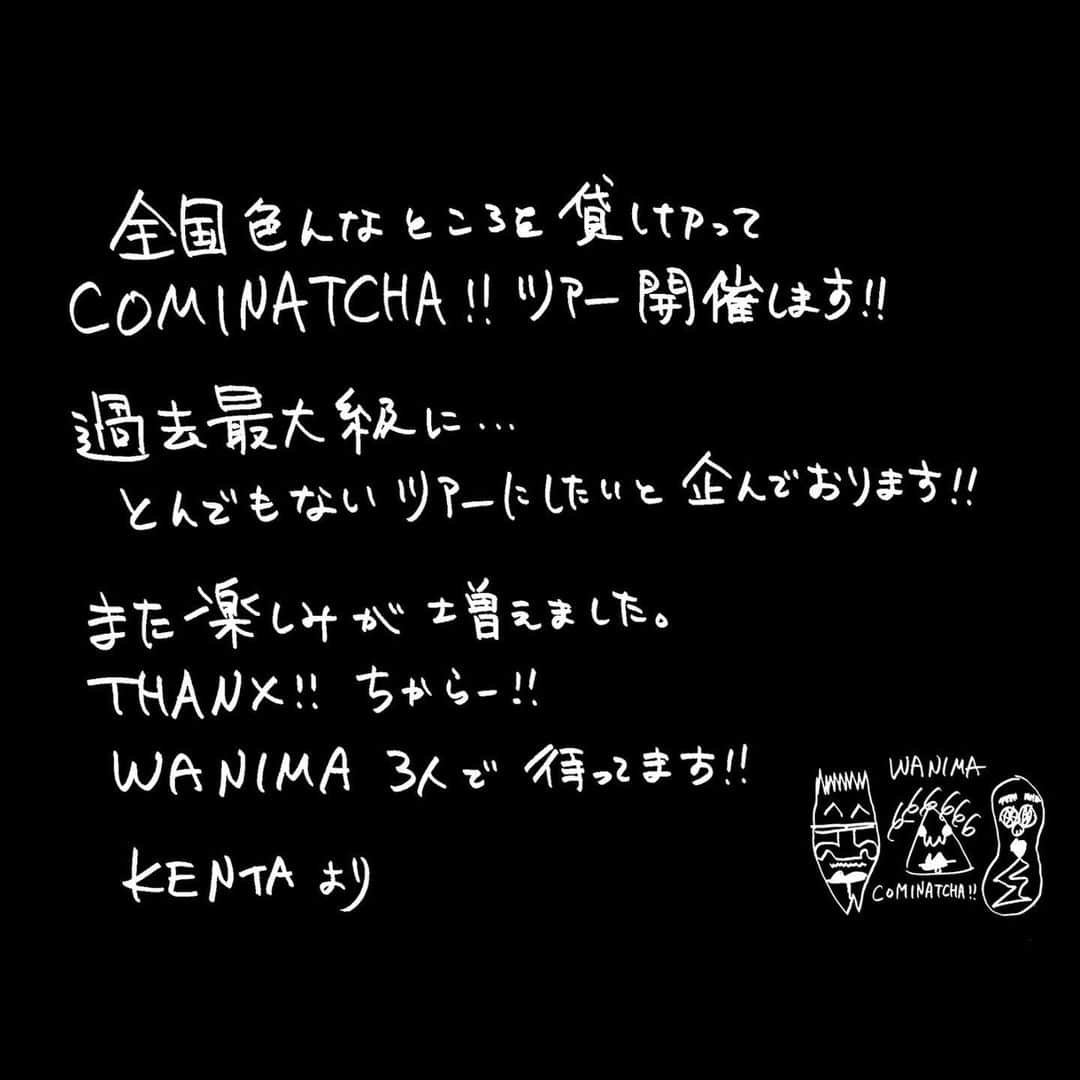 全国色んなところを貸しｷﾘって
COMINATCHA!! ツアー開催します!!
過去最大級に…
とんでもないツアーにしたいと企んでおります!!
また楽しみが増えました。
THANX!! ちからー!!
WANIMA 3人で待ってます!!
KENTAより
WANIMA
666666
COMINATCHA!!